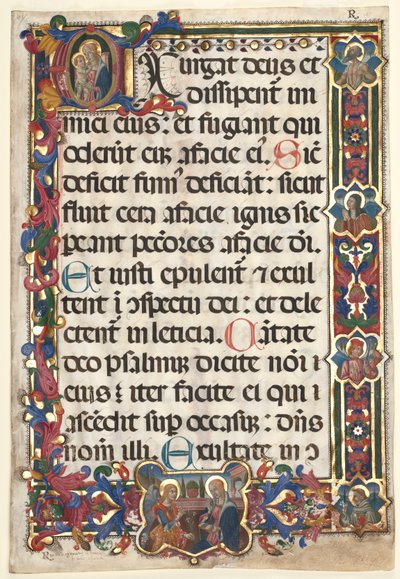 R
EXurgat deus et
dissipent̄ ini
mici eius: et fugiant qui
oderūt eū a facie eiˀ. Sic̄
deficit fumˀ deficiāt: sicut
fluit cera a facie ignis sic
pereant pec̄c̄ores a facie dī.
Et iusti epulent̄ ⁊ exul
tent ī ↄspectu dei: et dele
ctent̄ in leticia. Cātate
deo psalmuꝫ dicite noī
eius: iter facite ei qui
ascēdit suꝑ occasuꝫ: dn̄s
nom̄ illi. Exultate in ↄ